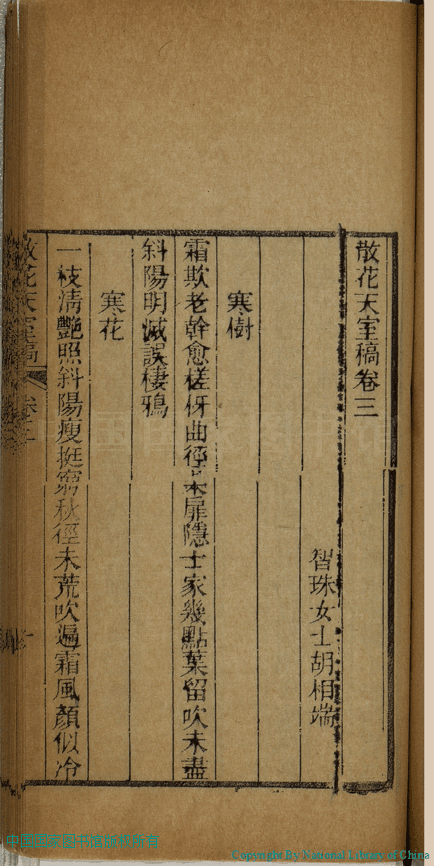 散花天室稿卷三
智珠女士胡相端
寒樹
霜欺老幹愈槎枒曲徑柴扉隱士家幾點葉留吹未盡
斜陽明滅誤棲鴉
寒花
一枝清艷照斜陽瘦挺窮秋徑未荒吹遍霜風顏似冷
散花天室稿 卷三
Copyright By National Library of China